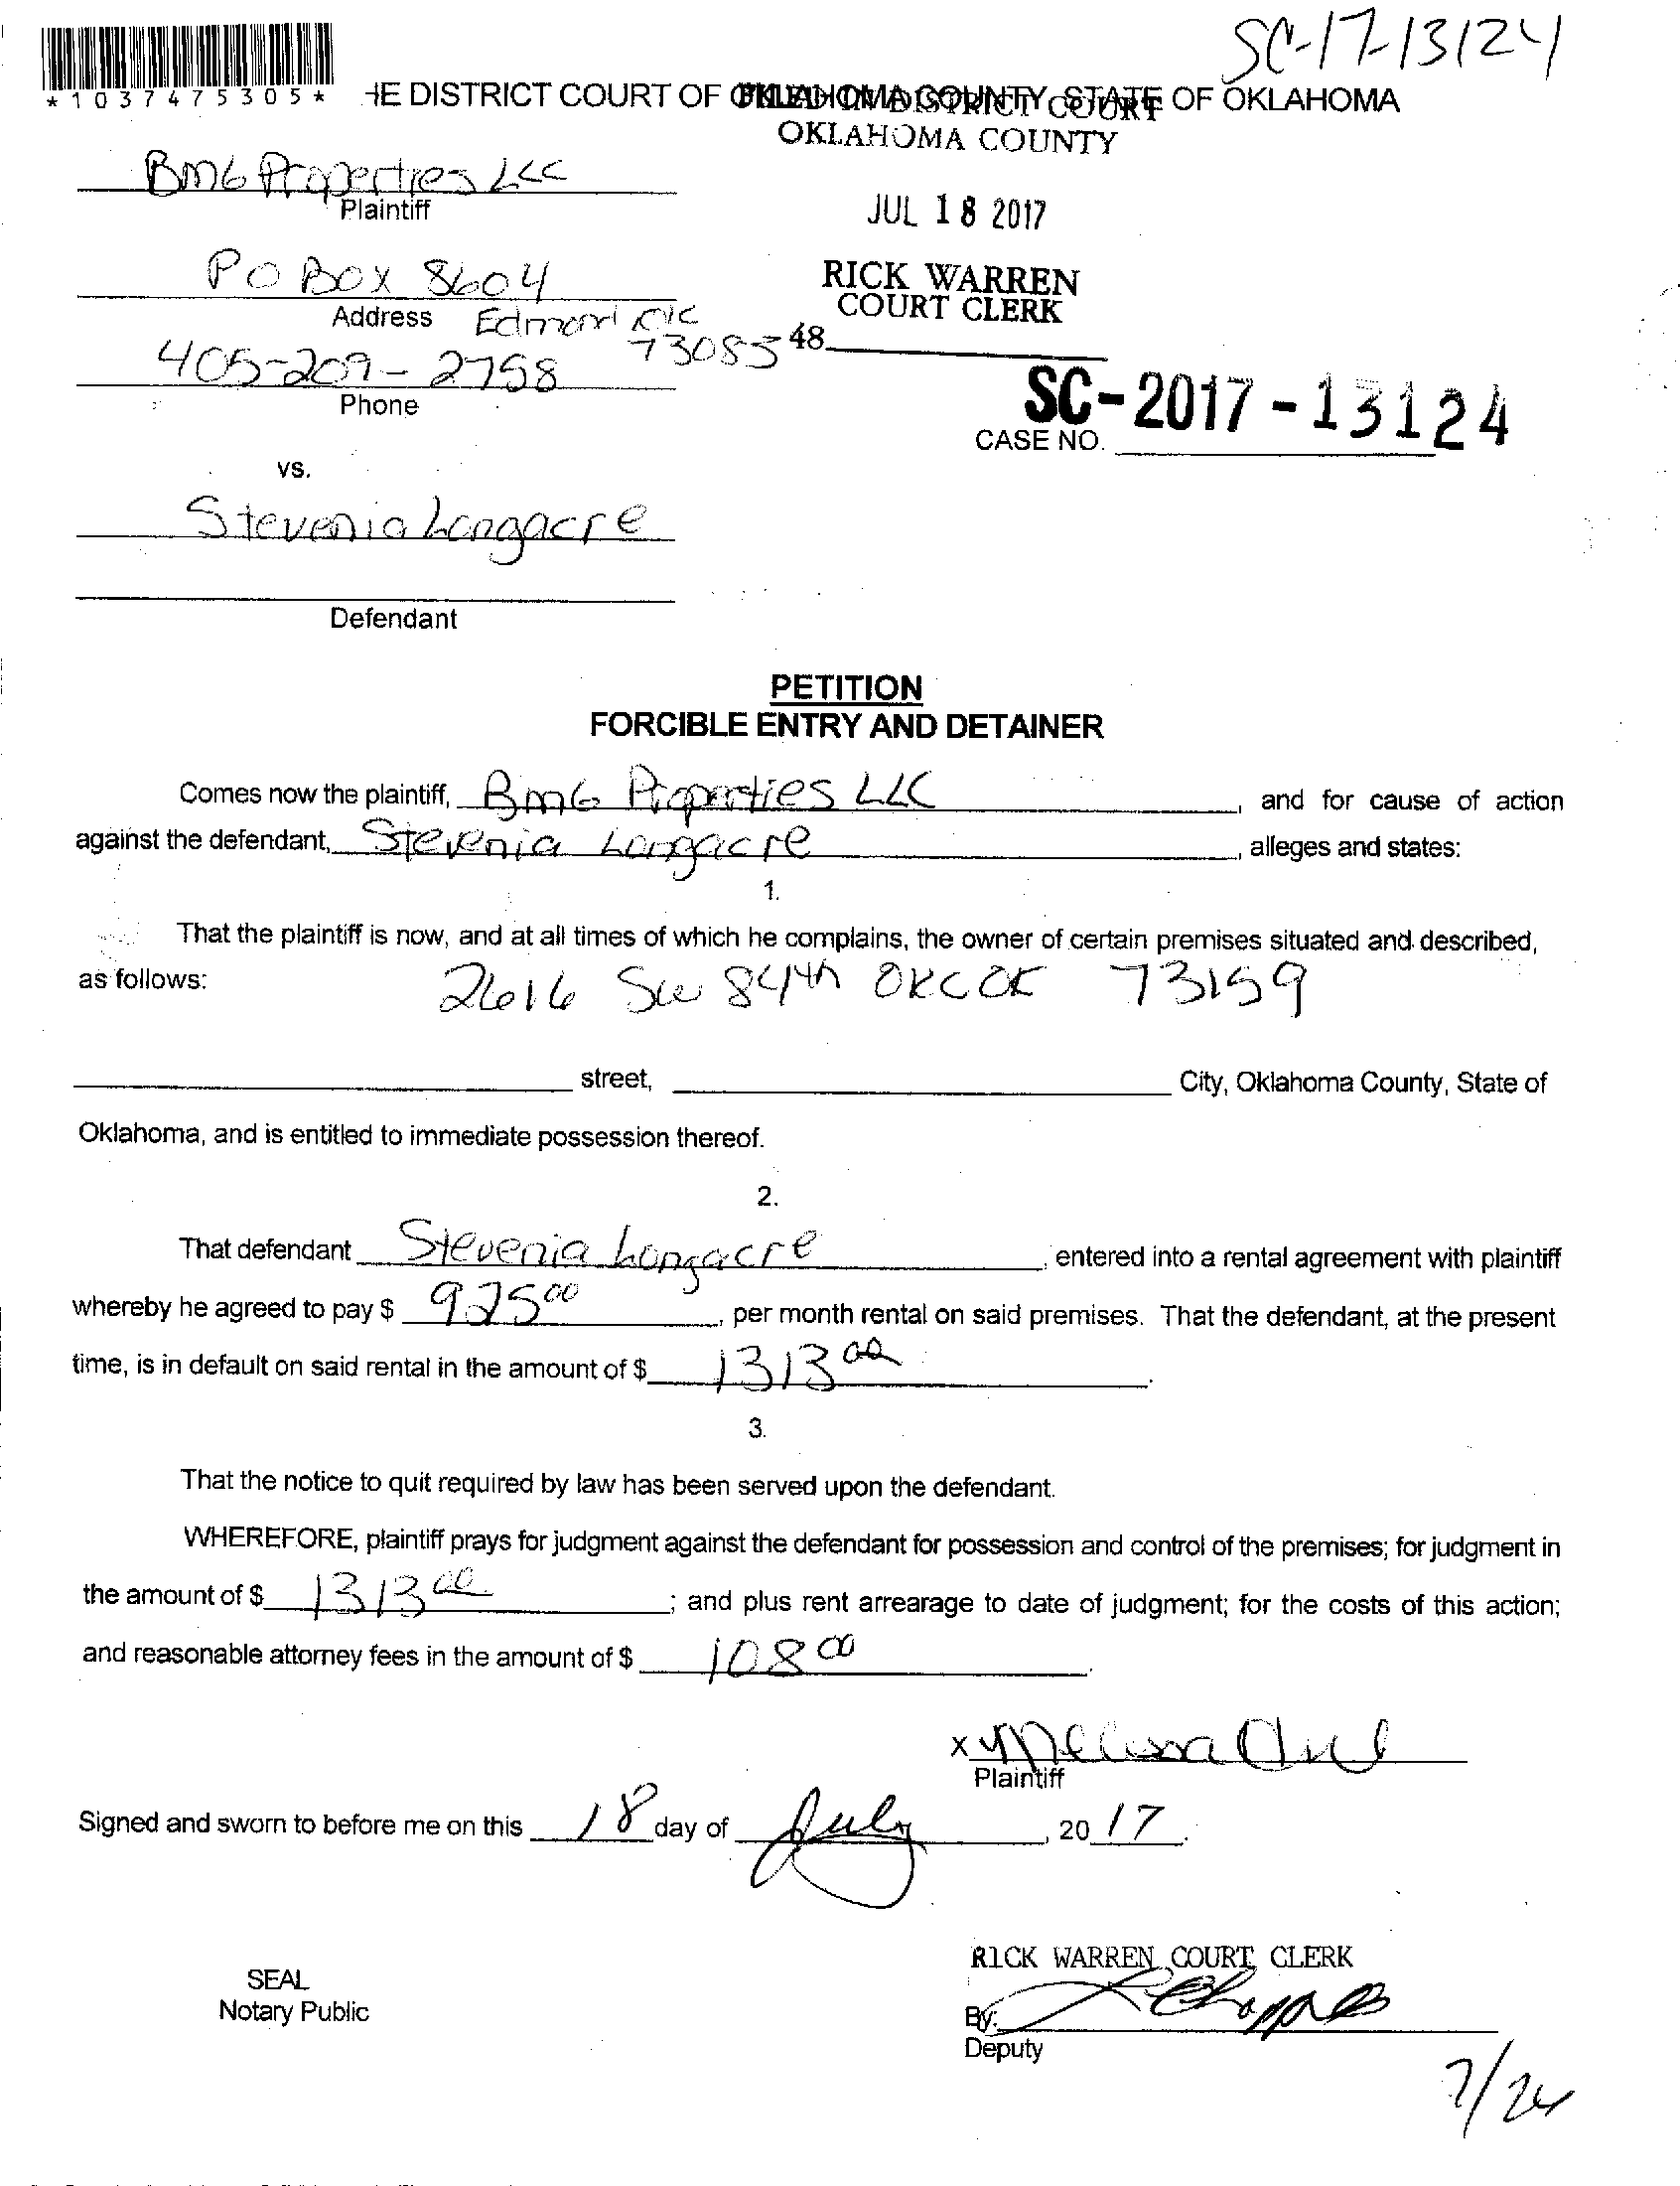 SC-17-13124
*1037475305*
HE DISTRICT COURT OF OKLAHOMA COUNTY, STATE OF OKLAHOMA
FILED IN DISTRICT COURT
OKLAHOMA COUNTY
BMG Properties LLC
Plaintiff
JUL 18 2017
PO Box 8604
RICK WARREN
COURT CLERK
Address Edmond OK
73083
48
405-209-2758
Phone
SC-2017-13124
CASE NO.
vs.
Stevenia Longacre
Defendant
PETITION
FORCIBLE ENTRY AND DETAINER
Comes now the plaintiff, BMG Properties LLC, and for cause of action
against the defendant, Stevenia Longacre, alleges and states:
1.
That the plaintiff is now, and at all times of which he complains, the owner of certain premises situated and described,
as follows: 2616 SW 84th OKC OK 73159
street, City, Oklahoma County, State of
Oklahoma, and is entitled to immediate possession thereof.
2.
That defendant Stevenia Longacre, entered into a rental agreement with plaintiff
whereby he agreed to pay $ 925 00, per month rental on said premises. That the defendant, at the present
time, is in default on said rental in the amount of $ 1313 00.
3.
That the notice to quit required by law has been served upon the defendant.
WHEREFORE, plaintiff prays for judgment against the defendant for possession and control of the premises; for judgment in
the amount of $ 1313 00; and plus rent arrearage to date of judgment; for the costs of this action;
and reasonable attorney fees in the amount of $ 108 00.
x Melissa
Plaintiff
Signed and sworn to before me on this 18 day of July, 20 17.
RICK WARREN, COURT CLERK
SEAL
Notary Public
By:
Deputy
7/24